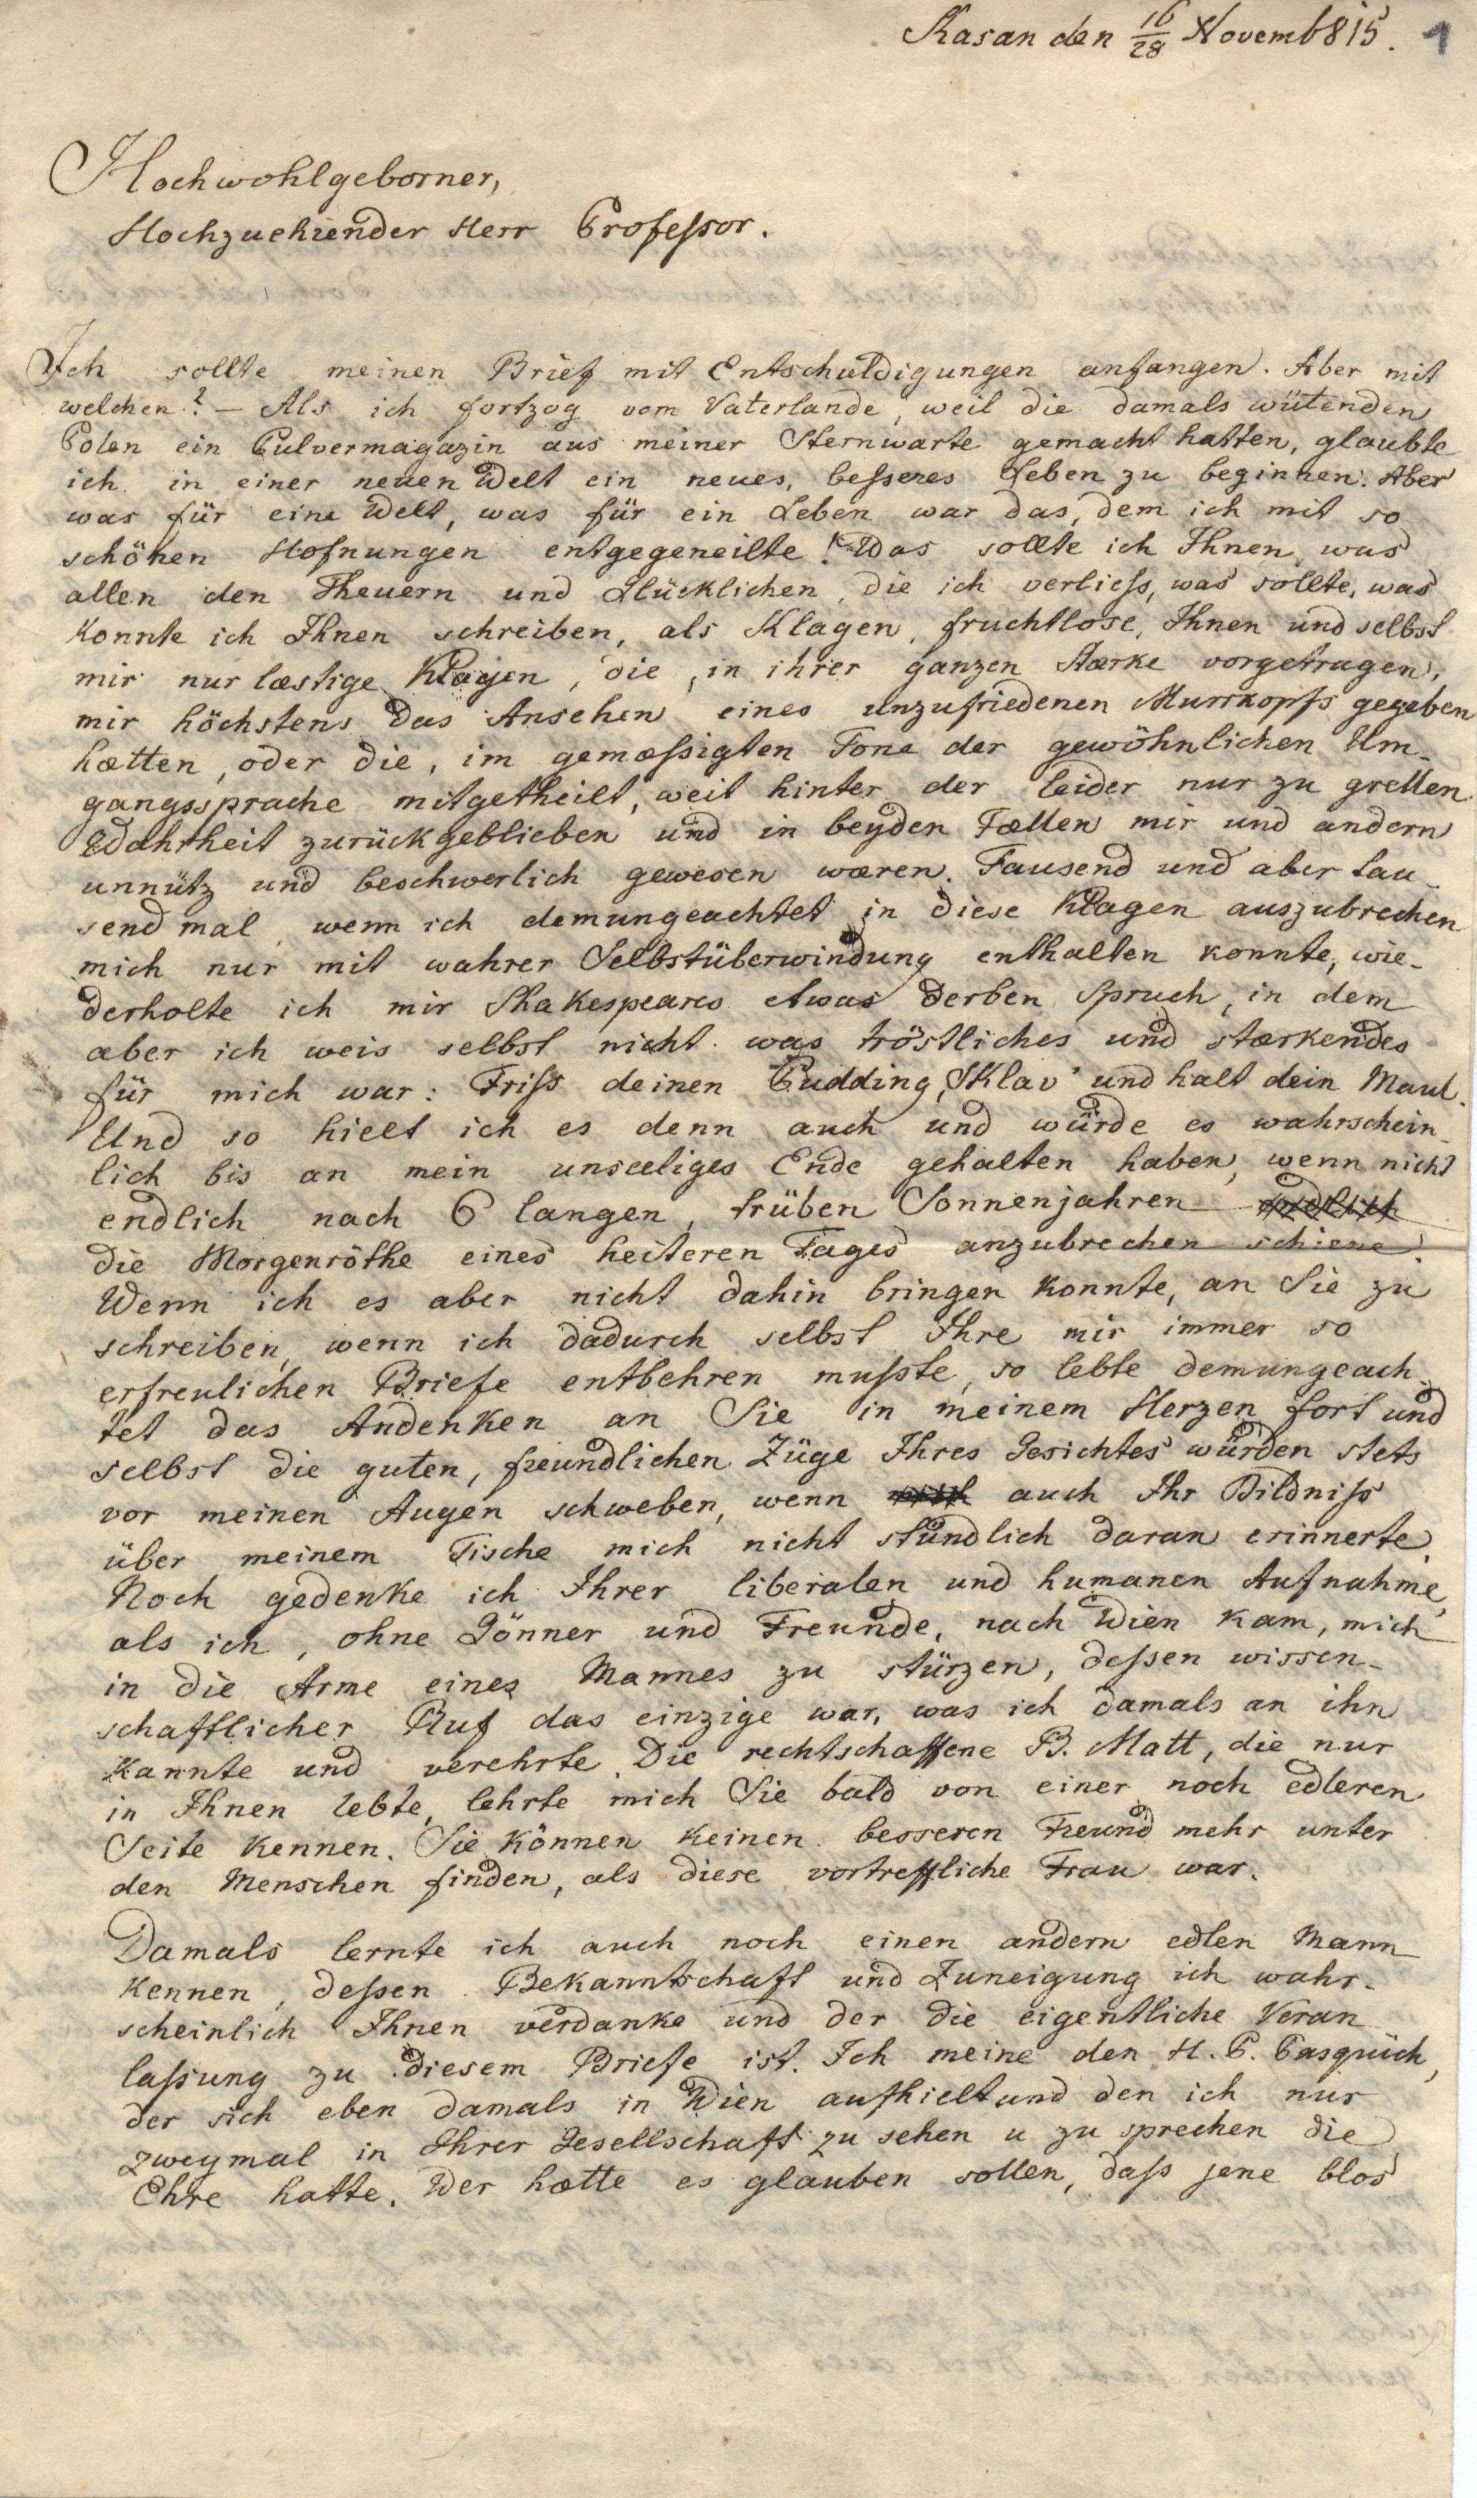 Kasan den 16/28 Novemb 815. 1
Hochwohlgeborner,
Hochzuehrender Herr Professor.
Ich sollte meinen Brief mit Entschuldigungen anfangen. Aber mit
welchen? – Als ich fortzog vom Vaterlande, weil die damals wütenden
Polen ein Pulvermagazin aus meiner Sternwarte gemacht hatten, glaubte
ich in einer neuen Welt ein neues, besseres Leben zu beginnen. Aber
was für eine Welt, was für ein Leben war das, dem ich mit so
schönen Hofnungen entgegeneilte! Was sollte ich Ihnen, was
allen den Theuern und Glücklichen, die ich verliess, was sollte, was
konnte ich Ihnen schreiben, als Klagen, fruchtlose, Ihnen und selbst
mir nur læstige Klagen, die, in ihrer ganzen Stærke vorgetragen,
mir höchstens das Ansehen eines unzufriedenen Murrkopfs gegeben
hætten, oder die, im gemæssigten Tone der gewöhnlichen Um-
gangssprache mitgetheilt, weit hinter der leider nur zu grellen
Wahrheit zurückgeblieben und in beyden Fællen mir und andern
unnütz und beschwerlich gewesen wæren. Tausend und aber tau-
send mal, wenn ich demungeachtet in diese Klagen auszubrechen
mich nur mit wahrer Selbstüberwindung enthalten konnte, wie-
derholte ich mir Shakespeares etwas derben Spruch, in dem
aber ich weis selbst nicht was tröstliches und stærkendes
für mich war: Friss deinen Pudding, Sklav' und halt dein Maul.
Und so hielt ich es denn auch und würde es wahrschein-
lich bis an mein unseeliges Ende gehalten haben, wenn nicht
endlich nach 6 langen, trüben Sonnenjahren endlich
die Morgenröthe eines heiteren Tages anzubrechen schiene.
Wenn ich es aber nicht dahin bringen konnte, an Sie zu
schreiben, wenn ich dadurch selbst Ihre mir immer so
erfreulichen Briefe entbehren musste, so lebte demungeach-
tet das Andenken an Sie in meinem Herzen fort und
selbst die guten, freundlichen Züge Ihres Gesichtes würden stets
vor meinen Augen schweben, wenn auch Ihr Bildniss
über meinem Tische mich nicht stündlich daran erinnerte.
Noch gedenke ich Ihrer liberalen und humanen Aufnahme,
als ich, ohne Gönner und Freunde, nach Wien kam, mich
in die Arme eines Mannes zu stürzen, dessen wissen-
schaftlicher Ruf das einzige war, was ich damals an ihn
kannte und verehrte. Die rechtschaffene B. Matt, die nur
in Ihnen lebte, lehrte mich Sie bald von einer noch edleren
Seite kennen. Sie können keinen besseren Freund mehr unter
den Menschen finden, als diese vortreffliche Frau war.
Damals lernte ich auch noch einen andern edlen Mann
kennen, dessen Bekanntschaft und Zuneigung ich wahr-
scheinlich Ihnen verdanke und der die eigentliche Veran
lassung zu diesem Briefe ist. Ich meine den H. P. Pasquich,
der sich eben damals in Wien aufhielt und den ich nur
zweymal in Ihrer Gesellschaft zu sehen u zu sprechen die
Ehre hatte. Wer hætte es glauben sollen, dass jene blos